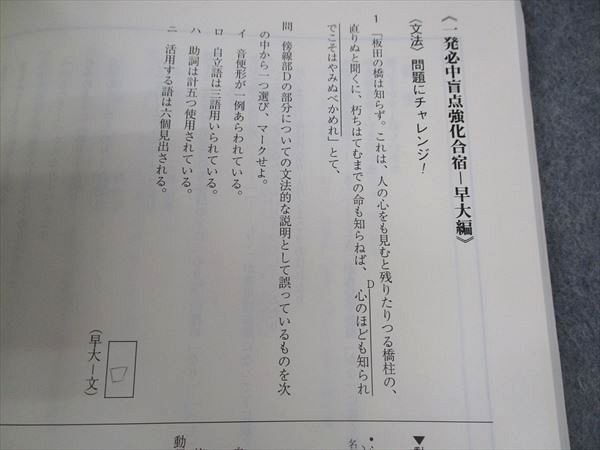 《一発必中盲点強化合宿―早大編》
〈文法〉問題にチャレンジ！
1 「板田の橋は知らず。これは、人の心をも見むと残りたりつる橋柱の、
直りぬと聞くに、朽ちはてむまでの命も知らねば、心のほども知られ
D
でこそはやみぬべかめれ」とて、
問 傍線部Dの部分についての文法的な説明として誤っているものを次
の中から一つ選び、マークせよ。
イ 音便形が一例あらわれている。
ロ 自立語は三語用いられている。
ハ 助詞は計五つ使用されている。
ニ 活用する語は六個見出される。
（早大―文）